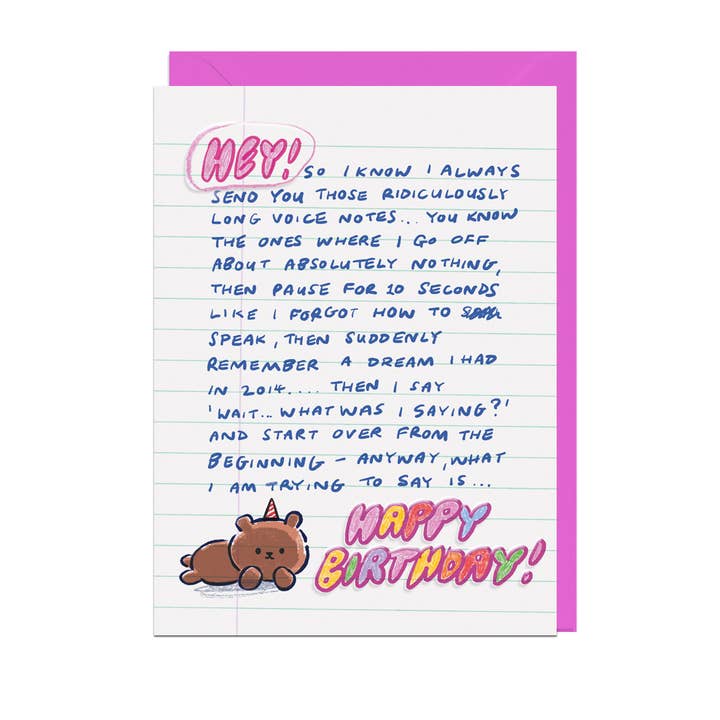 HEY! SO I KNOW I ALWAYS
SEND YOU THOSE RIDICULOUSLY
LONG VOICE NOTES... YOU KNOW
THE ONES WHERE I GO OFF
ABOUT ABSOLUTELY NOTHING,
THEN PAUSE FOR 10 SECONDS
LIKE I FORGOT HOW TO
SPEAK, THEN SUDDENLY
REMEMBER A DREAM I HAD
IN 2014.... THEN I SAY
'WAIT... WHAT WAS I SAYING?'
AND START OVER FROM THE
BEGINNING - ANYWAY, WHAT
I AM TRYING TO SAY IS...
HAPPY
BIRTHDAY!